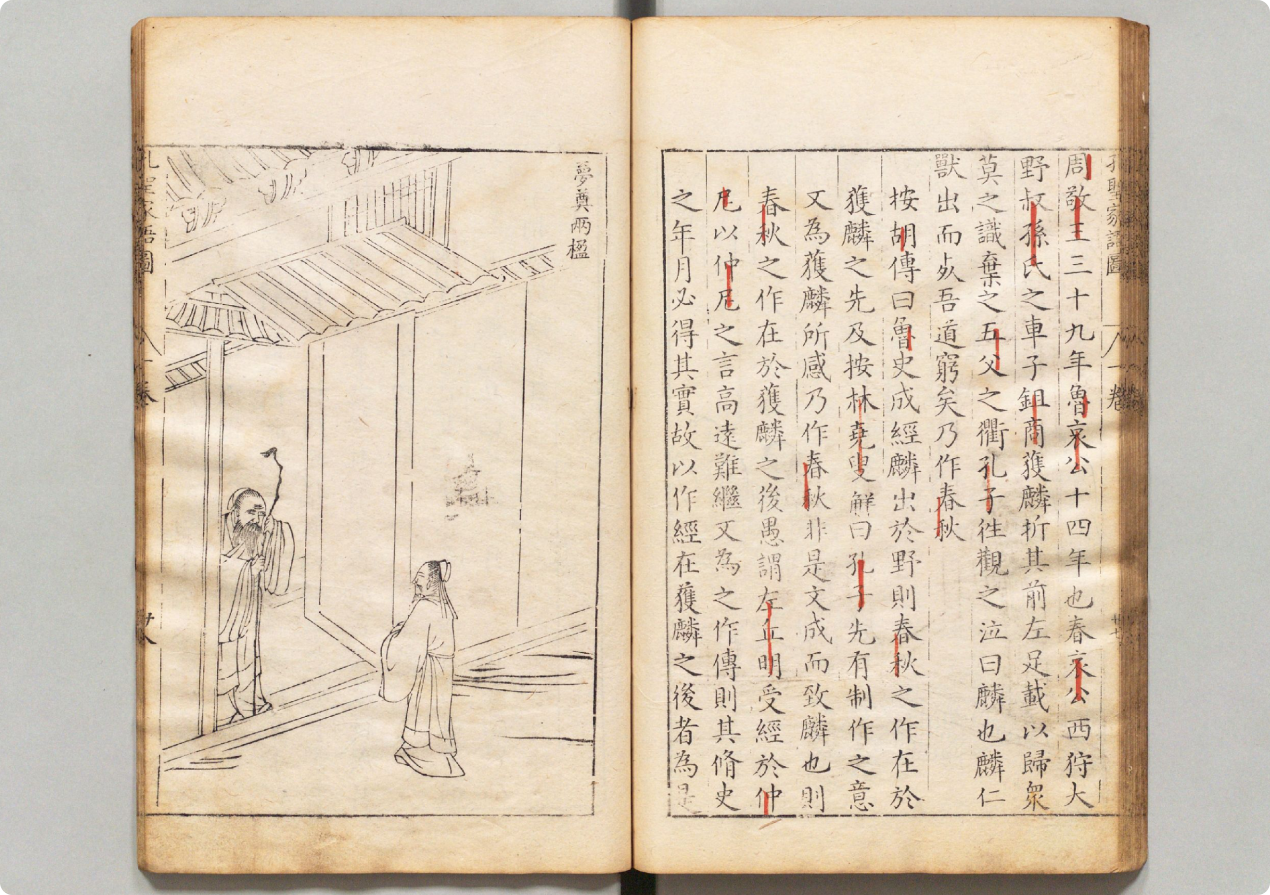 孔聖家語圖
八一卷
廿七
周敬王三十九年魯哀公十四年也春哀公西狩大
野叔孫氏之車子鉏商獲麟折其前左足載以歸衆
莫之識棄之五父之衢孔子徃觀之泣曰麟也麟仁
獸出而𣦸吾道窮矣乃作春秋
按胡傳曰魯史成經麟出於野則春秋之作在於
獲麟之先及按林堯叟解曰孔子先有制作之意
又為獲麟所感乃作春秋非是文成而致麟也則
春秋之作在於獲麟之後愚謂左丘明受經於仲
尼以仲尼之言高遠難繼又為之作傳則其脩史
之年月必得其實故以作經在獲麟之後者為是
夢奠兩楹
孔聖家語圖
八一卷
廿八